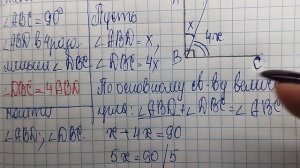 ∠ABC = 90°
∠ABD в 4 раза
меньше ∠DBC
∠DBC = 4∠ABD
Найти
∠ABD, ∠DBC.
Пусть
∠ABD = x,
∠DBC = 4x
По основному св-ву величин
угла: ∠ABD + ∠DBC = ∠ABC
x + 4x = 90
5x = 90 / 5
x
4x
B
C